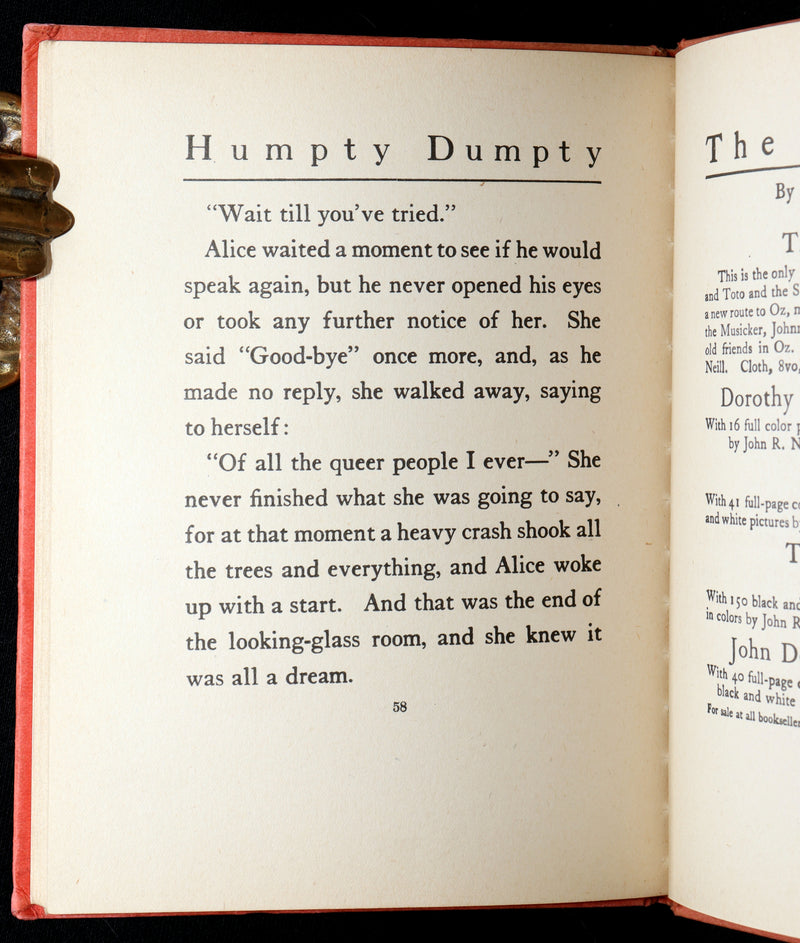 Humpty Dumpty
“Wait till you’ve tried.”
Alice waited a moment to see if he would
speak again, but he never opened his eyes
or took any further notice of her. She
said “Good-bye” once more, and, as he
made no reply, she walked away, saying
to herself:
“Of all the queer people I ever—” She
never finished what she was going to say,
for at that moment a heavy crash shook all
the trees and everything, and Alice woke
up with a start. And that was the end of
the looking-glass room, and she knew it
was all a dream.
58
The
By
This is the only
and Toto and the S
a new route to Oz, n
the Musicker, John
old friends in Oz.
Neill. Cloth, 8vo,
Dorothy
With 16 full color p
by John R. N
With 41 full-page c
and white pictures b
T
With 150 black and
in colors by John R
John D
With 40 full-page
black and white
For sale at all bookselle